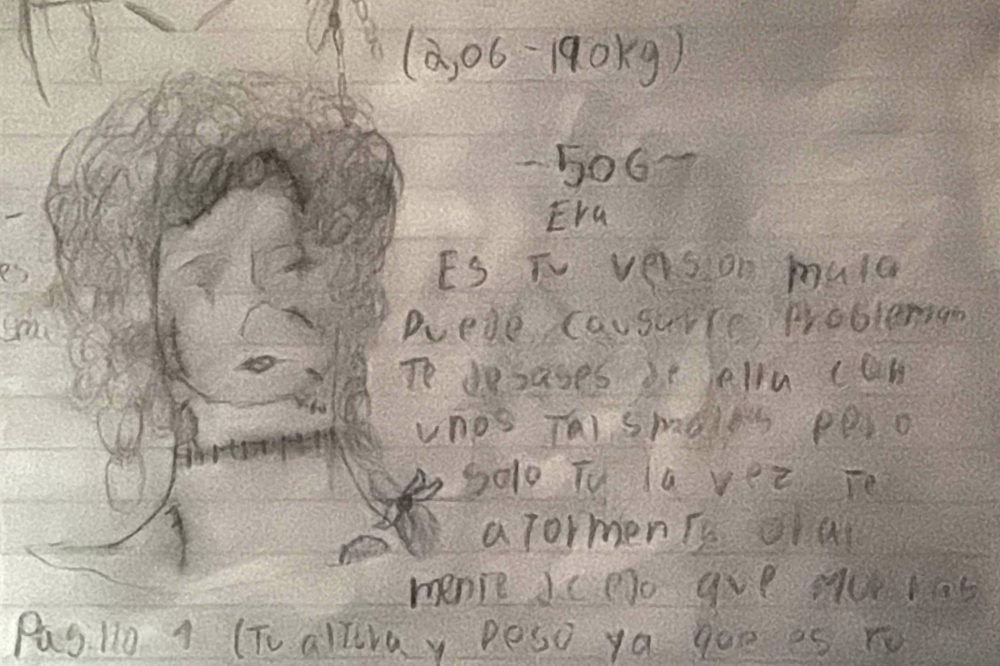 (2,06-190kg)
-506-
Era
Es Tu version mala
Puede causarte Problemas
Te desases de ella con
unos Talismanes pero
solo Tu la vez Te
atormenta
mente que
Pasillo 1 (Tu altura y peso ya que es tu
es